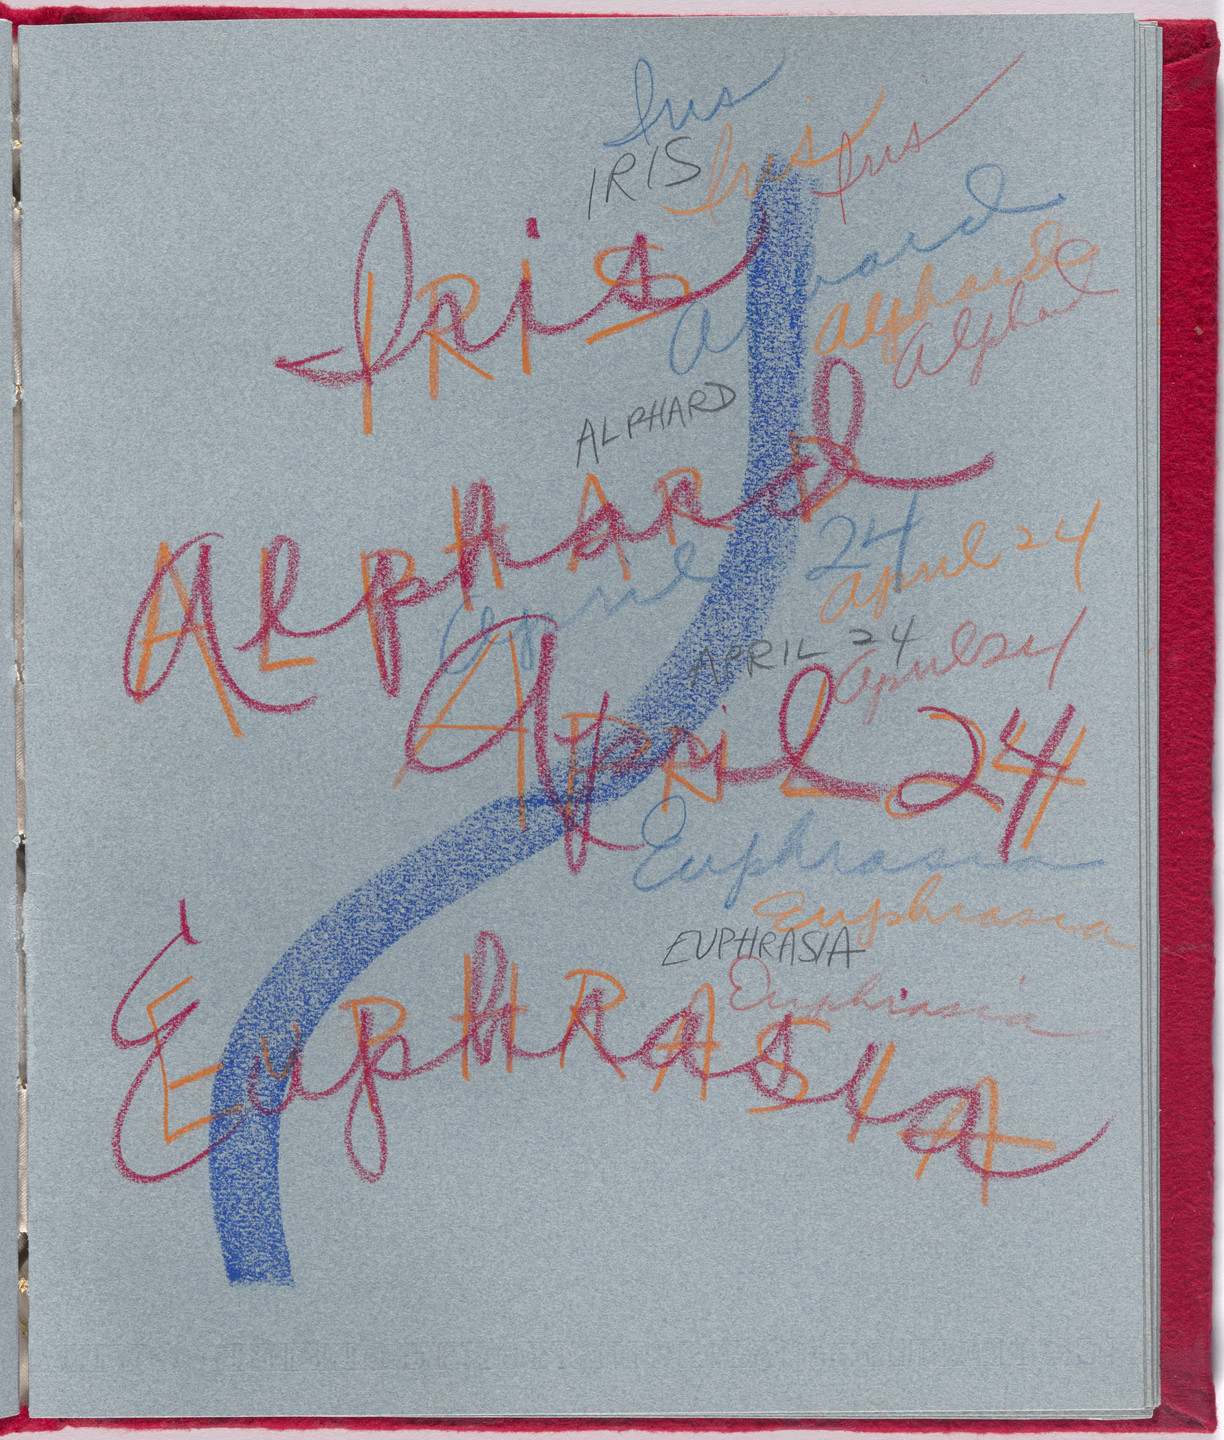 Iris
IRIS Iris Iris
Iris
IRIS
Alphard
Alphard
ALPHARD
Alphard
ALPHARD
April 24
April 24
APRIL 24 April 24
April 24
APRIL 24
Euphrasia
Euphrasia
EUPHRASIA
Euphrasia
Euphrasia
EUPHRASIA